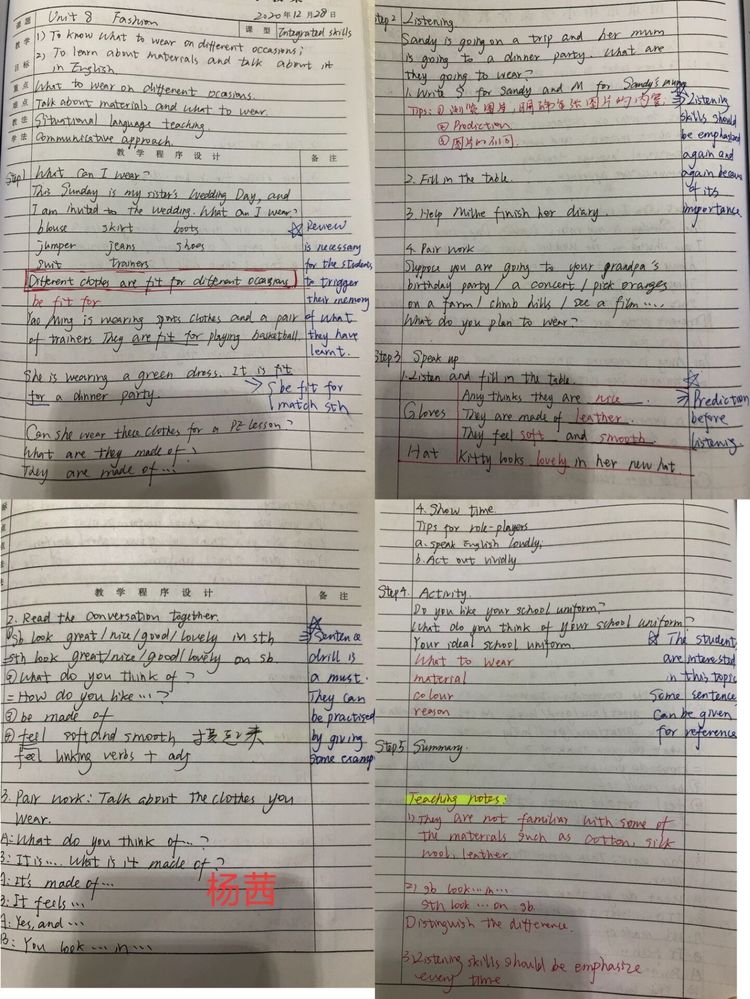 课题 Unit 8 Fashion 2020年12月28日
课型 Integrated skills
教学目标 1) To know what to wear on different occasions;
2) To learn about materials and talk about it
in English.
重点 What to wear on different ocasions.
难点 Talk about materials and what to wear.
教法 Situational language teaching.
学法 Communicative approach.
教学程序设计 备注
Step1 What can I wear?
This Sunday is my sister's Wedding Day, and
I am invited to the wedding. What can I wear?
blouse skirt boots
jumper jeans shoes
suit trainers
Different clothes are fit for different occasions
be fit for
Yao Ming is wearing sports clothes and a pair
of trainers They are fit for playing basketball.
She is wearing a green dress. It is fit
for a dinner party.
be fit for
match sth
Can she wear these clothes for a PE lesson?
What are they made of?
They are made of...
☆ Review
is necessary
for the students
to trigger
their memory
of what
they have
learnt.
Step2 Listening
Sandy is going on a trip and her mum
is going to a dinner party. What are
they going to wear?
1. Write S for Sandy and M for Sandy's mum
Tips: ① 浏览图片,明确每张图片的内容.
② Prediction
③
2. Fill in the table.
3. Help Millie finish her diary.
4. Pair work
Suppose you are going to your grandpa's
birthday party / a concert / pick oranges
on a farm / climb hills / see a film....
What do you plan to wear?
Listening
skills should
be emphasized
again and
again because
of its
importance.
Step3 Speak up
1. Listen and fill in the table.
Gloves Amy thinks they are nice
They are made of leather.
They feel soft and smooth
Hat Kitty looks lovely in her new hat.
☆
Prediction
before
listening.
教学程序设计 备注
2. Read the conversation together.
①sb look great/nice/good/lovely in sth
=sth look great/nice/good/lovely on sb.
②What do you think of?
=How do you like...?
③ be made of
④ feel soft and smooth 摸起来
feel linking verbs + adj
3. Pair work: Talk about the clothes you
wear.
A: What do you think of...?
B: It is.... What is it made of?
A: It's made of...
B: It feels...
A: Yes, and...
B: You look... in...
☆
Sentence
drill is
a must.
They can
be practised
by giving
some examp
杨茜
4. Show time
Tips for role-players
a. speak English loudly;
b. Act out vividly
Step4. Activity.
Do you like your school uniform?
What do you think of your school uniform?
Your ideal school uniform
What to wear
material
colour
reason
☆ The student
are interested
in this topic
Some sentence
can be given
for reference
Step5 Summary.
Teaching notes:
1) They are not familiar with some of
the materials such as cotton, silk
wool, leather.
2) sb look...in...
sth look...on sb.
Distinguish the difference.
3) Listening skills should be emphasize
every time.